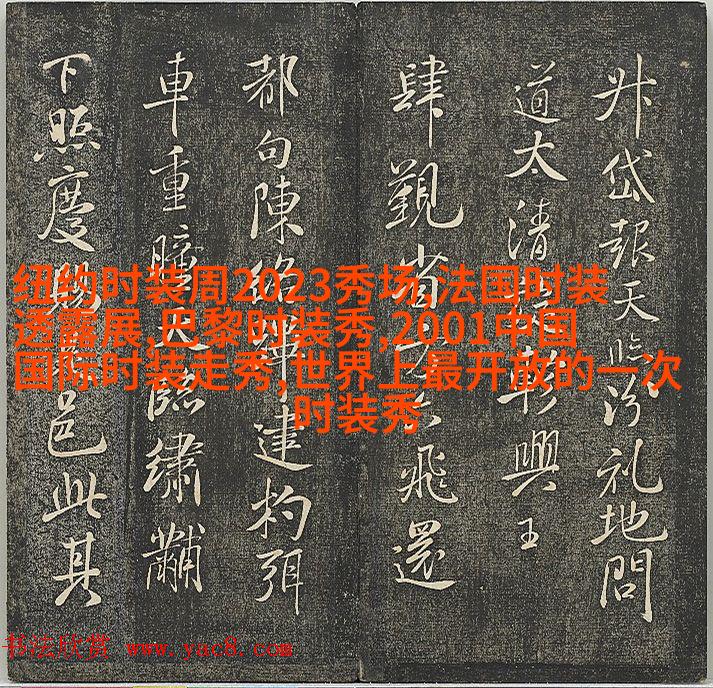 升岱報天臨汾礼地問
道太清興王
肆覲省飛還
都句陳建杓弭
車重天臨繡黼
下照慶邑此其
纽约时装周2023秀场,法国时装
透露展,巴黎时装秀,2001中国
国际时装走秀,世界上最开放的一次
时装秀
书法欣赏 www.yac8.com